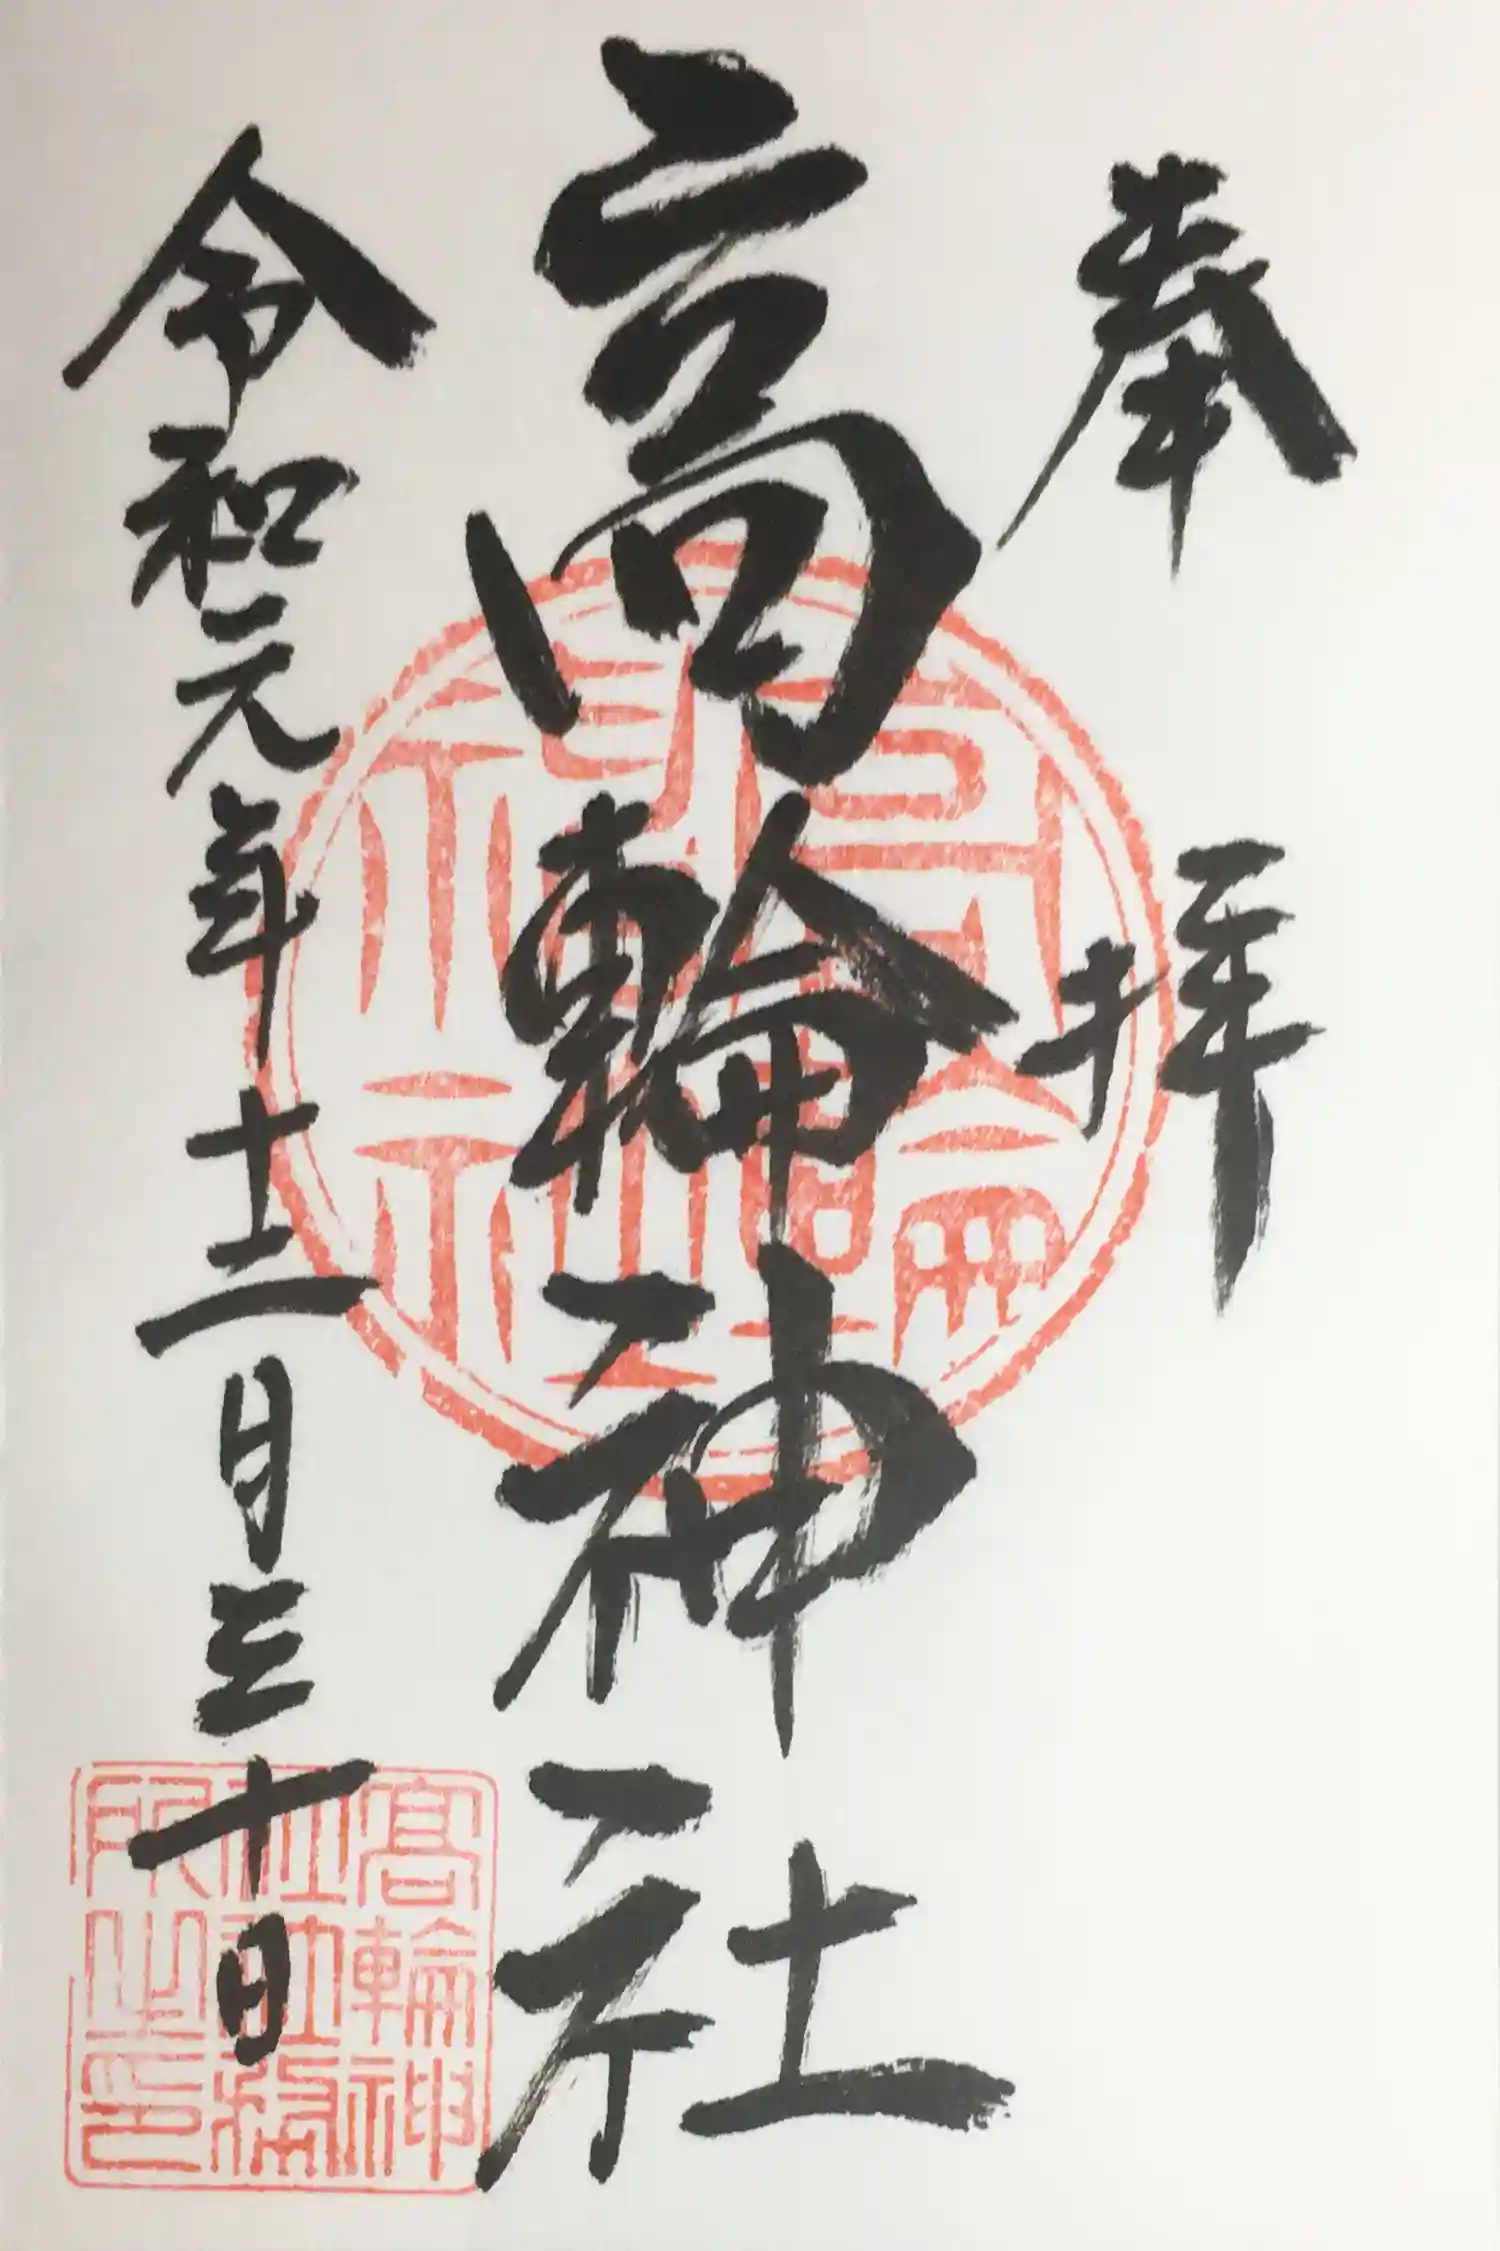 奉拝
高輪神社
令和元年十二月三十日
高輪神
社社務
所之印
高輪神社